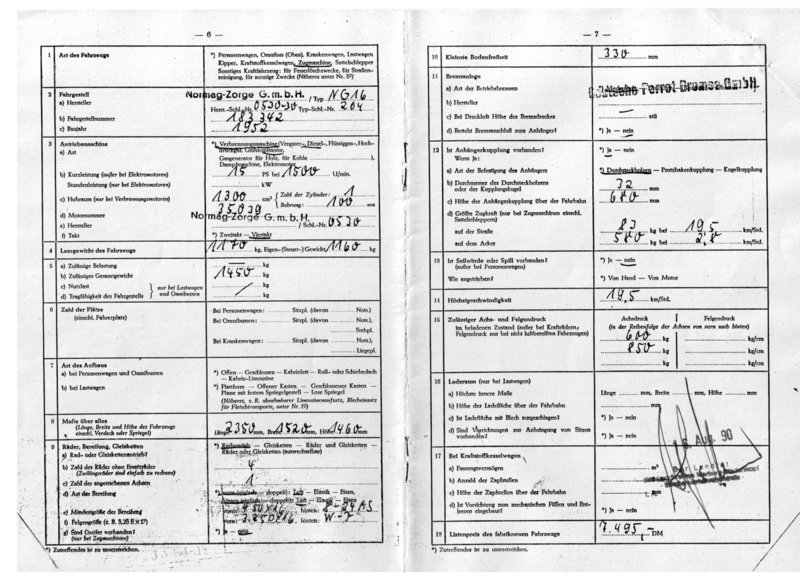 — 6 —
1 Art des Fahrzeugs
*) Personenwagen, Omnibus (Obus), Krankenwagen, Lastwagen
Kipper, Kraftstoffkesselwagen, Zugmaschine, Sattelschlepper
Sonstiges Kraftfahrzeug: für Feuerlöschzwecke, für Straßen-
reinigung, für sonstige Zwecke (Näheres unter Nr. 19)
2 Fahrgestell
a) Hersteller
Normag-Zorge G.m.b.H. / Typ NG16
Herst.-Schl.-Nr. 0530-30 Typ-Schl.-Nr. 204
b) Fahrgestellnummer 183342
c) Baujahr 1952
3 Antriebsmaschine
a) Art
*) Verbrennungsmaschine (Vergaser-, Diesel-, Flüssiggas-, Hoch-
druckgas, Glühkopfmotor,
Gasgenerator für Holz, für Kohle ),
Dampfmaschine, Elektromotor
b) Kurzleistung (außer bei Elektromotoren) 15 PS bei 1500 U/min.
Stundenleistung (nur bei Elektromotoren) kW
c) Hubraum (nur bei Verbrennungsmotoren) 1300 cm³ Zahl der Zylinder: 1
Bohrung: 100 mm
d) Motornummer 35039
e) Hersteller Normag-Zorge G.m.b.H. / Schl.-Nr. 0530
f) Takt *) Zweitakt — Viertakt
4 Leergewicht des Fahrzeugs 1170 kg, Eigen-(Steuer-)Gewicht 1160 kg
5 a) Zulässige Belastung — kg
b) Zulässiges Gesamtgewicht 1450 kg
c) Nutzlast kg
d) Tragfähigkeit des Fahrgestells kg
nur bei Lastwagen
und Omnibussen
6 Zahl der Plätze
(einschl. Fahrerplatz)
Bei Personenwagen: Sitzpl. (davon Nots.)
Bei Omnibussen: Sitzpl. (davon Nots.),
Stehpl.
Bei Krankenwagen: Sitzpl. (davon Nots.),
Liegepl.
7 Art des Aufbaus
a) bei Personenwagen und Omnibussen
*) Offen — Geschlossen — Kabriolett — Roll- oder Schiebedach
— Kabrio-Limousine
b) bei Lastwagen
*) Plattform — Offener Kasten — Geschlossener Kasten —
Plane mit festem Spriegelgestell — Lose Spriegel
(Näheres, z. B. abnehmbarer Limousinenaufsatz, Blecheinsatz
für Fleischtransporte, unter Nr. 19)
8 Maße über alles
(Länge, Breite und Höhe des Fahrzeugs
einschl. Verdeck oder Spriegel)
Länge 2350 mm, Breite 1520 mm, Höhe 1460 mm
9 Räder, Bereifung, Gleisketten
a) Rad- oder Gleiskettenantrieb?
*) Radantrieb — Gleisketten — Räder und Gleisketten —
Räder oder Gleisketten (auswechselbar)
b) Zahl der Räder ohne Ersatzräder
(Zwillingsräder sind einfach zu rechnen) 4
c) Zahl der angetriebenen Achsen 1
d) Art der Bereifung
e) Mindestgröße der Bereifung
f) Felgengröße (z. B. 3,25 E × 17)
g) Sind Greifer vorhanden?
(nur bei Zugmaschinen)
*) Ja — nein
*) Zutreffendes ist zu unterstreichen.
— 7 —
10 Kleinste Bodenfreiheit 330 mm
11 Bremsanlage
a) Art der Betriebsbremsen
b) Hersteller
Deutsche Perrot Bremse GmbH.
c) Bei Druckluft Höhe des Bremsdruckes atü
d) Besteht Bremsanschluß zum Anhänger? *) Ja — nein
12 Ist Anhängerkupplung vorhanden? *) Ja — nein
Wenn ja:
a) Art der Befestigung des Anhängers *) Durchsteckbolzen — Protzhakenkupplung — Kugelkupplung
b) Durchmesser des Durchsteckbolzens
oder der Kupplungskugel 32 mm
c) Höhe der Anhängerkupplung über der Fahrbahn 680 mm
d) Größte Zugkraft (nur bei Zugmaschinen einschl.
Sattelschleppern)
auf der Straße 83 kg bei 19,5 km/Std.
auf dem Acker 580 kg bei 2,8 km/Std.
13 Ist Seilwinde oder Spill vorhanden? *) Ja — nein
(außer bei Personenwagen)
Wie angetrieben? *) Von Hand — Von Motor
14 Höchstgeschwindigkeit 19,5 km/Std.
15 Zulässiger Achs- und Felgendruck
im beladenen Zustand (außer bei Krafträdern,
Felgendruck nur bei nicht luftbereiften Fahrzeugen)
Achsdruck Felgendruck
(in der Reihenfolge der Achsen von vorn nach hinten)
600 kg kg/cm
850 kg kg/cm
kg kg/cm
16 Laderaum (nur bei Lastwagen)
a) Höchste innere Maße Länge mm, Breite mm, Höhe mm
b) Höhe der Ladefläche über der Fahrbahn mm
c) Ist Ladefläche mit Blech ausgeschlagen? *) Ja — nein
d) Sind Vorrichtungen zur Anbringung von Sitzen
vorhanden? *) Ja — nein
Aug. 90
Der Landrat
17 Bei Kraftstoffkesselwagen
a) Fassungsvermögen m³
b) Anzahl der Zapfstellen
c) Höhe der Zapfstellen über der Fahrbahn
d) Ist Vorrichtung zum mechanischen Füllen und Ent-
leeren eingebaut? *) Ja — nein
18 Listenpreis des fabrikneuen Fahrzeugs 7.495,- DM
*) Zutreffendes ist zu unterstreichen.